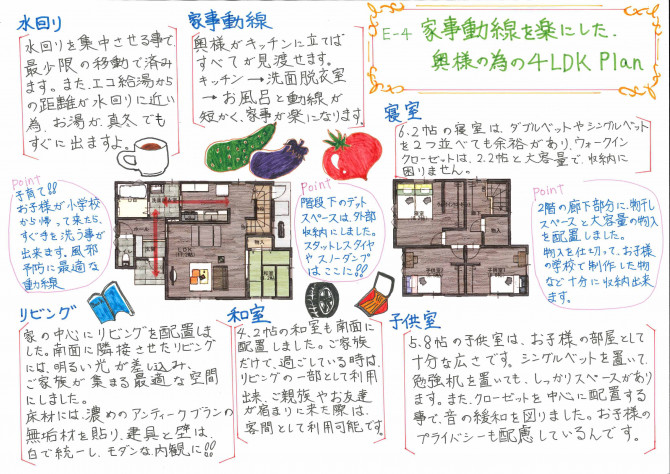 E-4 家事動線を楽にした.
奥様の為の4LDK Plan
水回り
水回りを集中させる事で、
最少限の移動で済み
ます。また、エコ給湯から
の距離が水回りに近い
為、お湯が、真冬でも
すぐに出ますよ。
家事動線
奥様がキッチンに立てば
すべてが見渡せます。
キッチン→洗面脱衣室
→お風呂と動線が
短かく、家事が楽になります。
寝室
6.2帖の寝室は、ダブルベットやシングルベット
を2つ並べても余裕があり、ウォークイン
クローゼットは、2.2帖と大容量で、収納に
困りません。
Point
子育て!!
お子様が小学校
から帰って来たら、
すぐ手を洗う事が
出来ます。風邪
予防に最適な
動線
Point
階段下のデット
スペースは、外部
収納にしました。
スタットレスタイヤ
やスノーダンプ
はここに!!
Point
2階の廊下部分に、物干し
スペースと大容量の物入
を配置しました。
物入を仕切って、お子様
の学校で制作した物
など十分に収納出来
ます。
リビング
家の中心にリビングを配置しま
した。南面に隣接させたリビング
には、明るい光が差し込み、
ご家族が集まる最適な空間
にしました。
床材には、濃めのアンティークブラウンの
無垢材を貼り、建具と壁は、
白で統一し、モダンな内観に!!
和室
4.2帖の和室も南面に
配置しました。ご家族
だけで、過ごしている時は、
リビングの一部として利用
出来、ご親族やお友達
が宿まりに来た際は、
客間として利用可能です。
子供室
5.8帖の子供室は、お子様の部屋として
十分な広さです。シングルベットを置いて、
勉強机を置いても、しっかりスペースがあり
ます。また、クローゼットを中心に配置する
事で、音の緩和を図りました。お子様の
プライバシーも配慮しているんです。